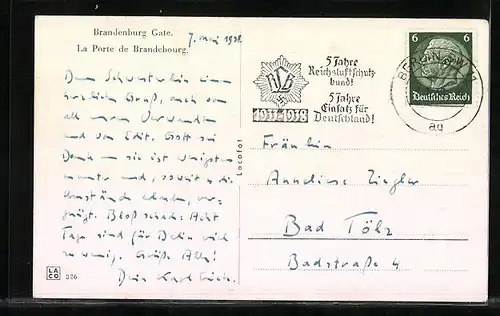 Brandenburg Gate.
La Porte de Brandebourg.
7. Mai 1938.
Dem Schwesterlein einen
herzlichen Gruß, auch von
all unsern Verwandten
und von Edit. Gott sei
Dank — sie ist wenigstens
munter und, soweit es die
Umstände erlauben, ver-
gnügt. Bloß schade: Acht
Tage sind für Berlin viel
zu wenig. Grüße Alle!
Dein
LACO
326
Lacofot
RLB
5 Jahre
Reichsluftschutz-
bund!
5 Jahre
Einsatz für
Deutschland!
1933-1938
BERLIN SW 11
ag
6 6
Deutsches Reich
Fräulein
Anneliese Ziegler
Bad Tölz
Badstraße 4